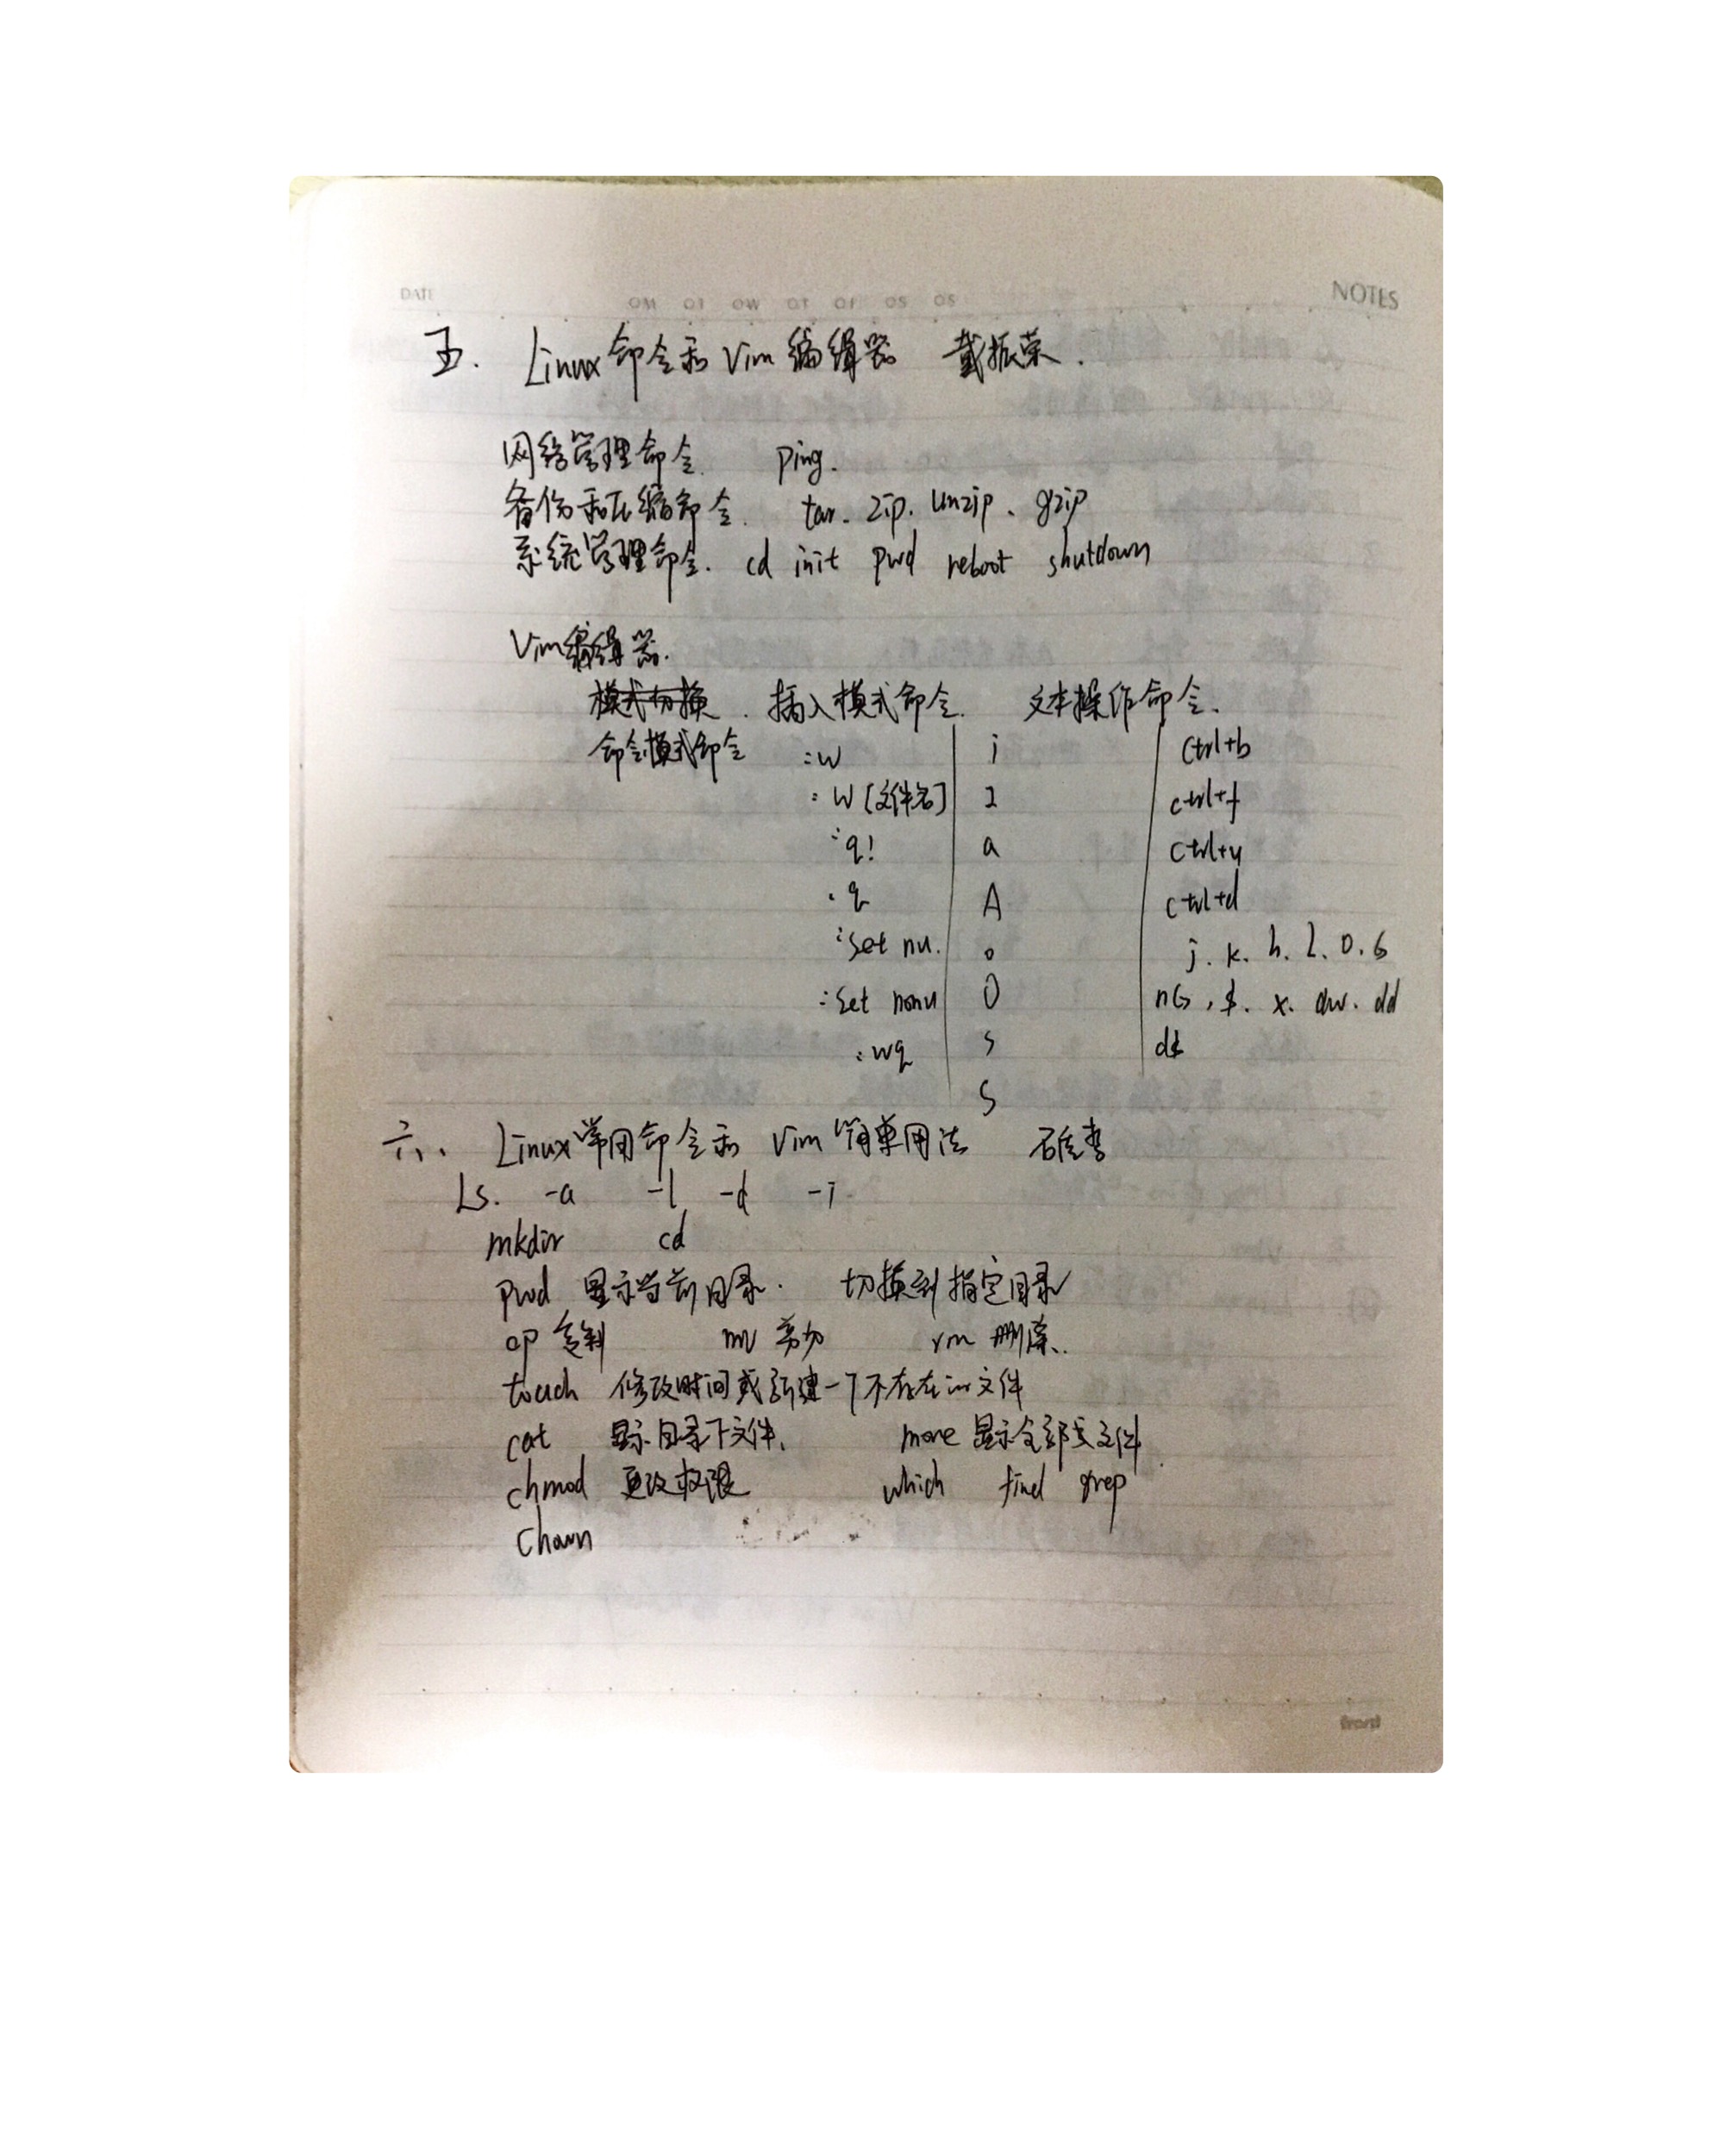 DATE NOTES
五. Linux命令和Vim编辑器 戴振荣.
网络管理命令. ping.
备份和压缩命令. tar. zip. unzip. gzip
系统管理命令. cd init pwd reboot shutdown
Vim编辑器.
模式切换. 插入模式命令. 文本操作命令.
命令模式命令 :w i ctrl+b
:w [文件名] I ctrl+f
:q! a ctrl+u
:q A ctrl+d
:set nu. o j. k. h. l. 0. G
:set nonu O nG, $. x. dw. dd
:wq s d$
S
六、Linux常用命令和Vim简单用法
Ls. -a -l -d -i
mkdir cd
pwd 显示当前目录. 切换到指定目录
cp 复制 mv 剪切 rm 删除.
touch 修改时间或新建一个不存在的文件
cat 显示目录下文件. more 显示全部文件.
chmod 更改权限 which find grep
chown